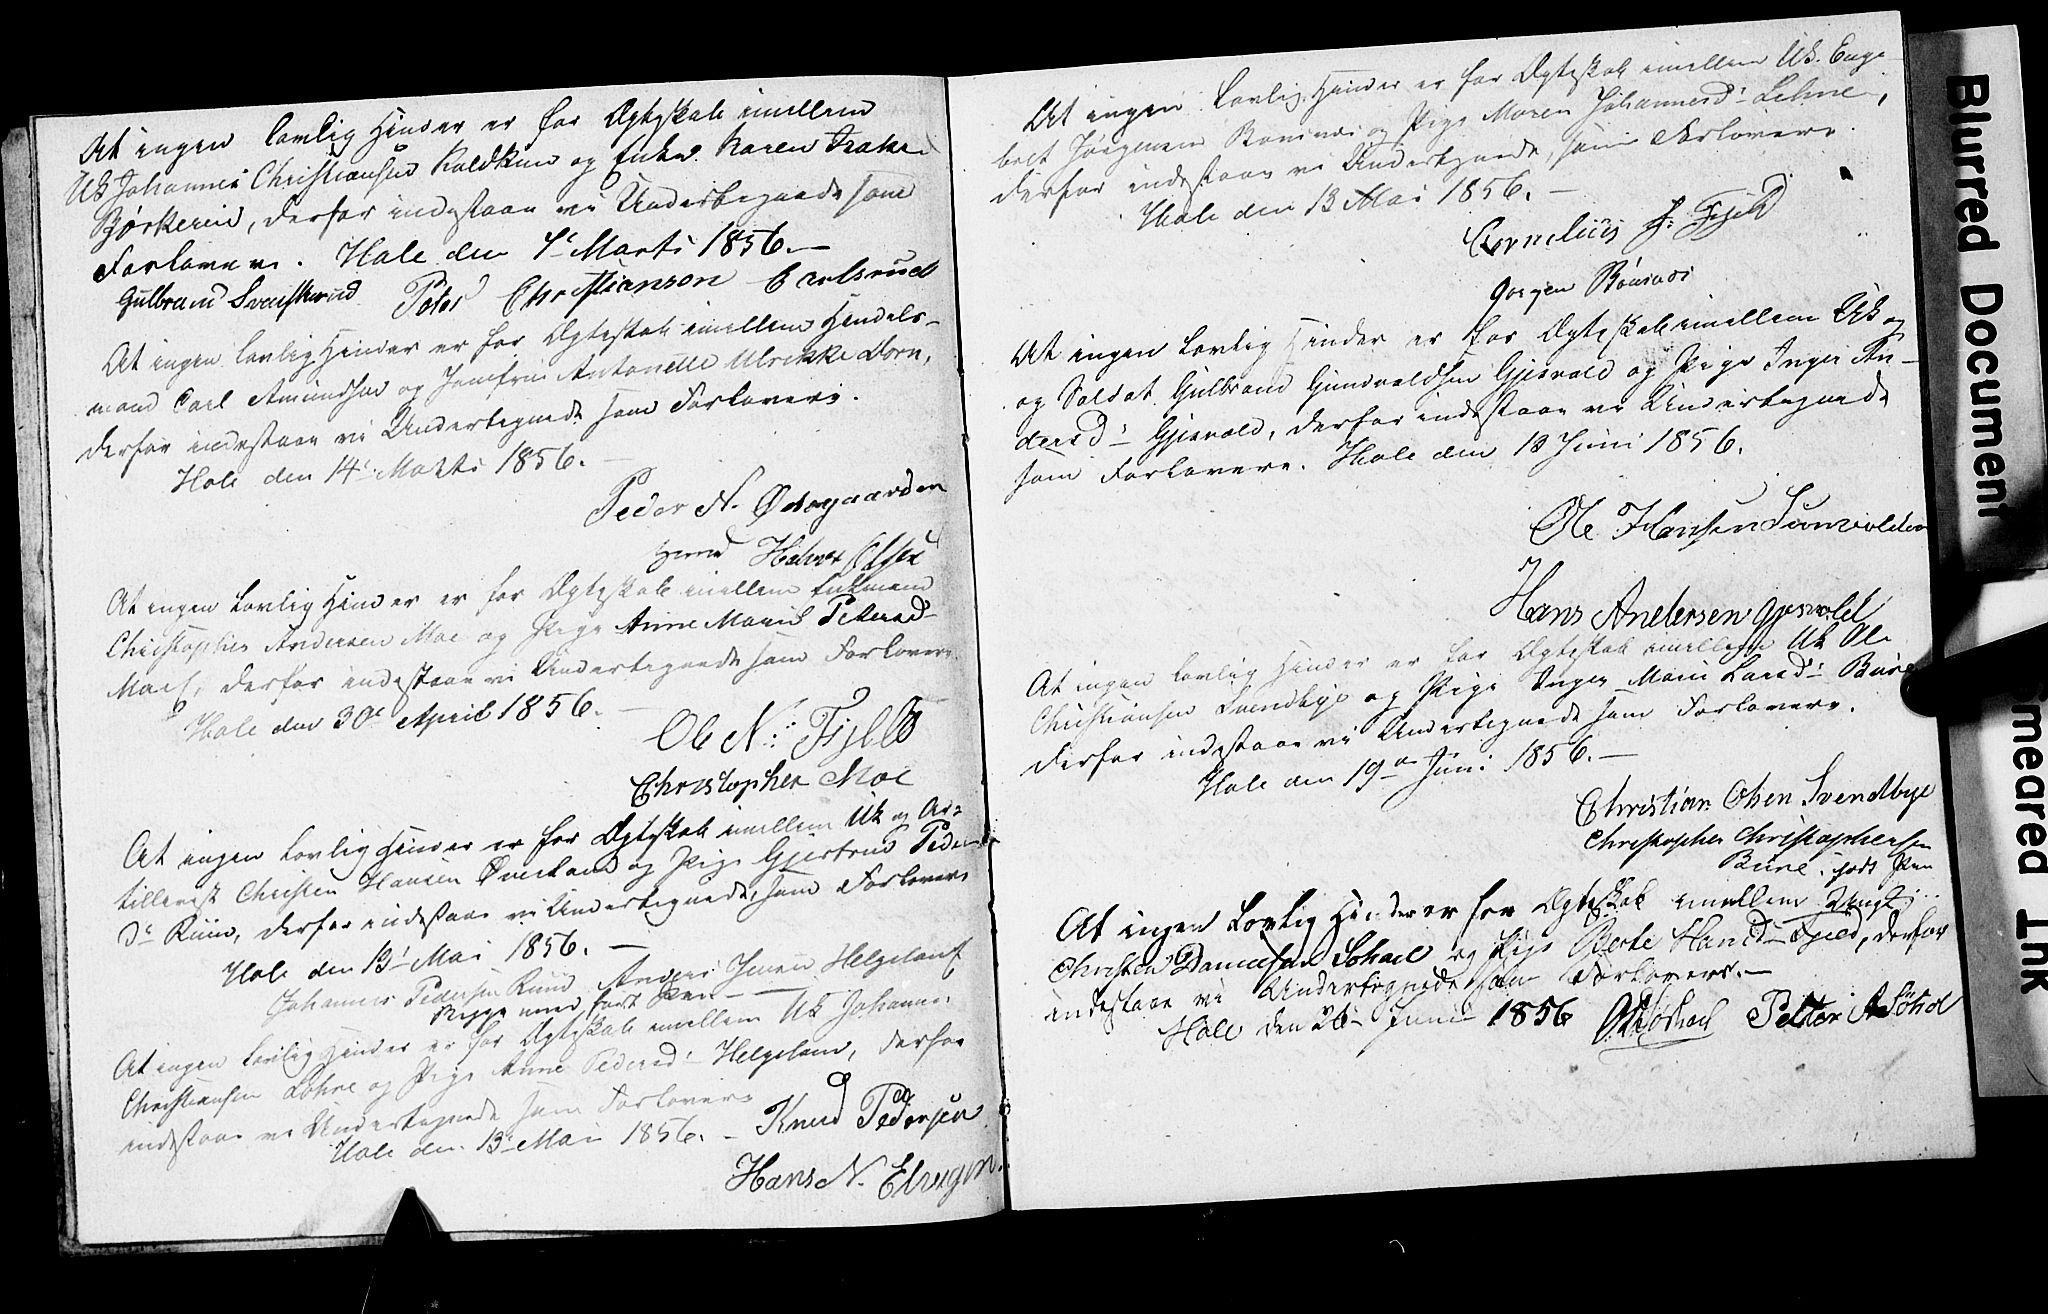 At ingen lovlig Hinder er for Ægteskab imellem
Uk Johannes Christiansen Koldkin og Enke Karen Isaks
Bjørkeeie, derfor indestaae vi Undertegnede som
Forlovere. Hole den 4 Marts 1856.
Gulbrand Svarstad Peter Christianson Carlsrud
At ingen lovlig Hinder er for Ægteskab imellem Handels-
mand Carl Amundsen og Jomfrue Antonette Ulrikke Dorn,
derfor indestaae vi Undertegnede som Forlovere.
Hole den 14 Marts 1856.
Peder N. Ødergaarden
Halvor Olsen
At ingen Lovlig Hinder er for Ægteskab imellem Enkemand
Christopher Andersen Moe og Pige Anne Marie Petersd
Moe, derfor indestaae vi Undertegnede som Forlovere
Hole den 30 April 1856.
Ole N: Fjeld
Christopher Moe
At ingen Lovlig Hinder er for Ægteskab imellem Uk og Ar-
tillerist Christen Hansen Øverland og Pige Gjertrud Peders
Dr Ruud, derfor indestaae vi Undertegnede, som Forlovere
Hole den 13 Mai 1856.
Johannes Pedersen Ruud Anders Jensen Helgeland
begge med ført Pen
At ingen Lovlig Hinder er for Ægteskab imellem Uk Johannes
Christiansen Løhre og Pige Anne Pedersd Helgeland, derfor
indestaae vi Undertegnede som Forlovere
Hole den 13 Mai 1856. Knud Pedersen
Hans N. Elvigen
At ingen Lovlig Hinder er for Ægteskab imellem Uk. Enge-
bret Jørgensen Rønsnæs og Pige Maren Johannesd Lehne,
derfor indestaae vi Undertegnede, som Forlovere.
Hole den 13 Mai 1856.
Cornelius J: Fjeld
Jorgen Bönsnæs
At ingen Lovlig Hinder er for Ægteskab imellem Uk og
og Soldat Gulbrand Gundvaldsen Gjesvold og Pige Inger An-
dersd Gjesvold, derfor indestaae vi Undertegnede
som Forlovere. Hole den 13 Juni 1856.
Ole Hansen Sunvolden
Hans Andersen Gjesvold
At ingen Lovlig Hinder er for Ægteskab imellem Uk Ole
Christiansen Svendbye og Pige Inger Marie Larsd Bure
derfor indestaae vi Undertegnede som Forlovere.
Hole den 19 Juni 1856.
Christian Olsen Svendbye
Christopher Christophersen
Bure, ført Pen
At ingen Lovlig Hinder er for Ægteskab imellem Ungk
Christen Danielsen Sohol og Pige Berte Hansd Fjeld, derfor
indestaae vi Undertegnede som Forlovere.
Hole den 26 Juni 1856 Petter A Søhol
Blurred Document
Smeared Ink